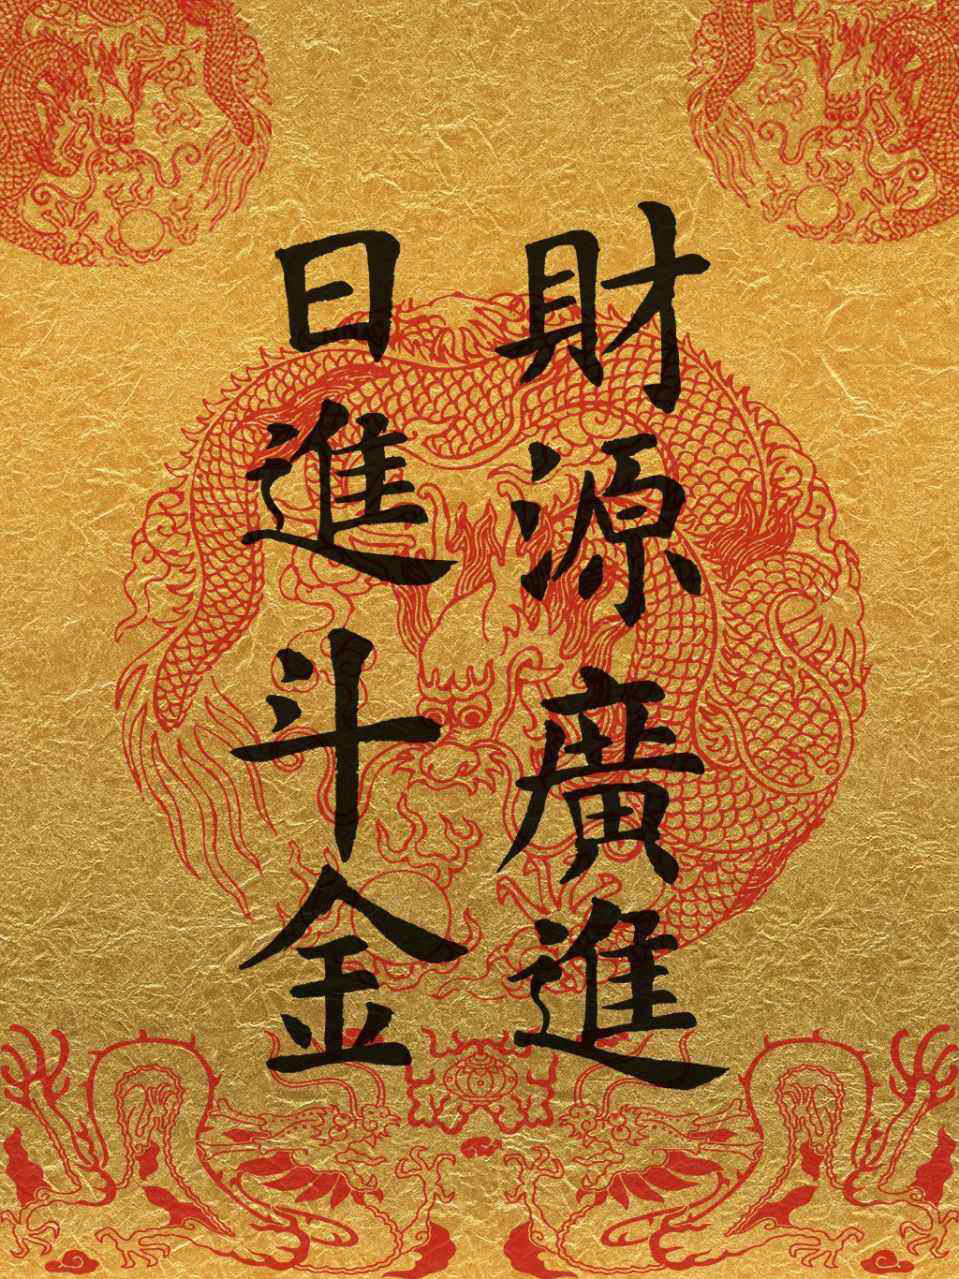 財源廣進
日進斗金